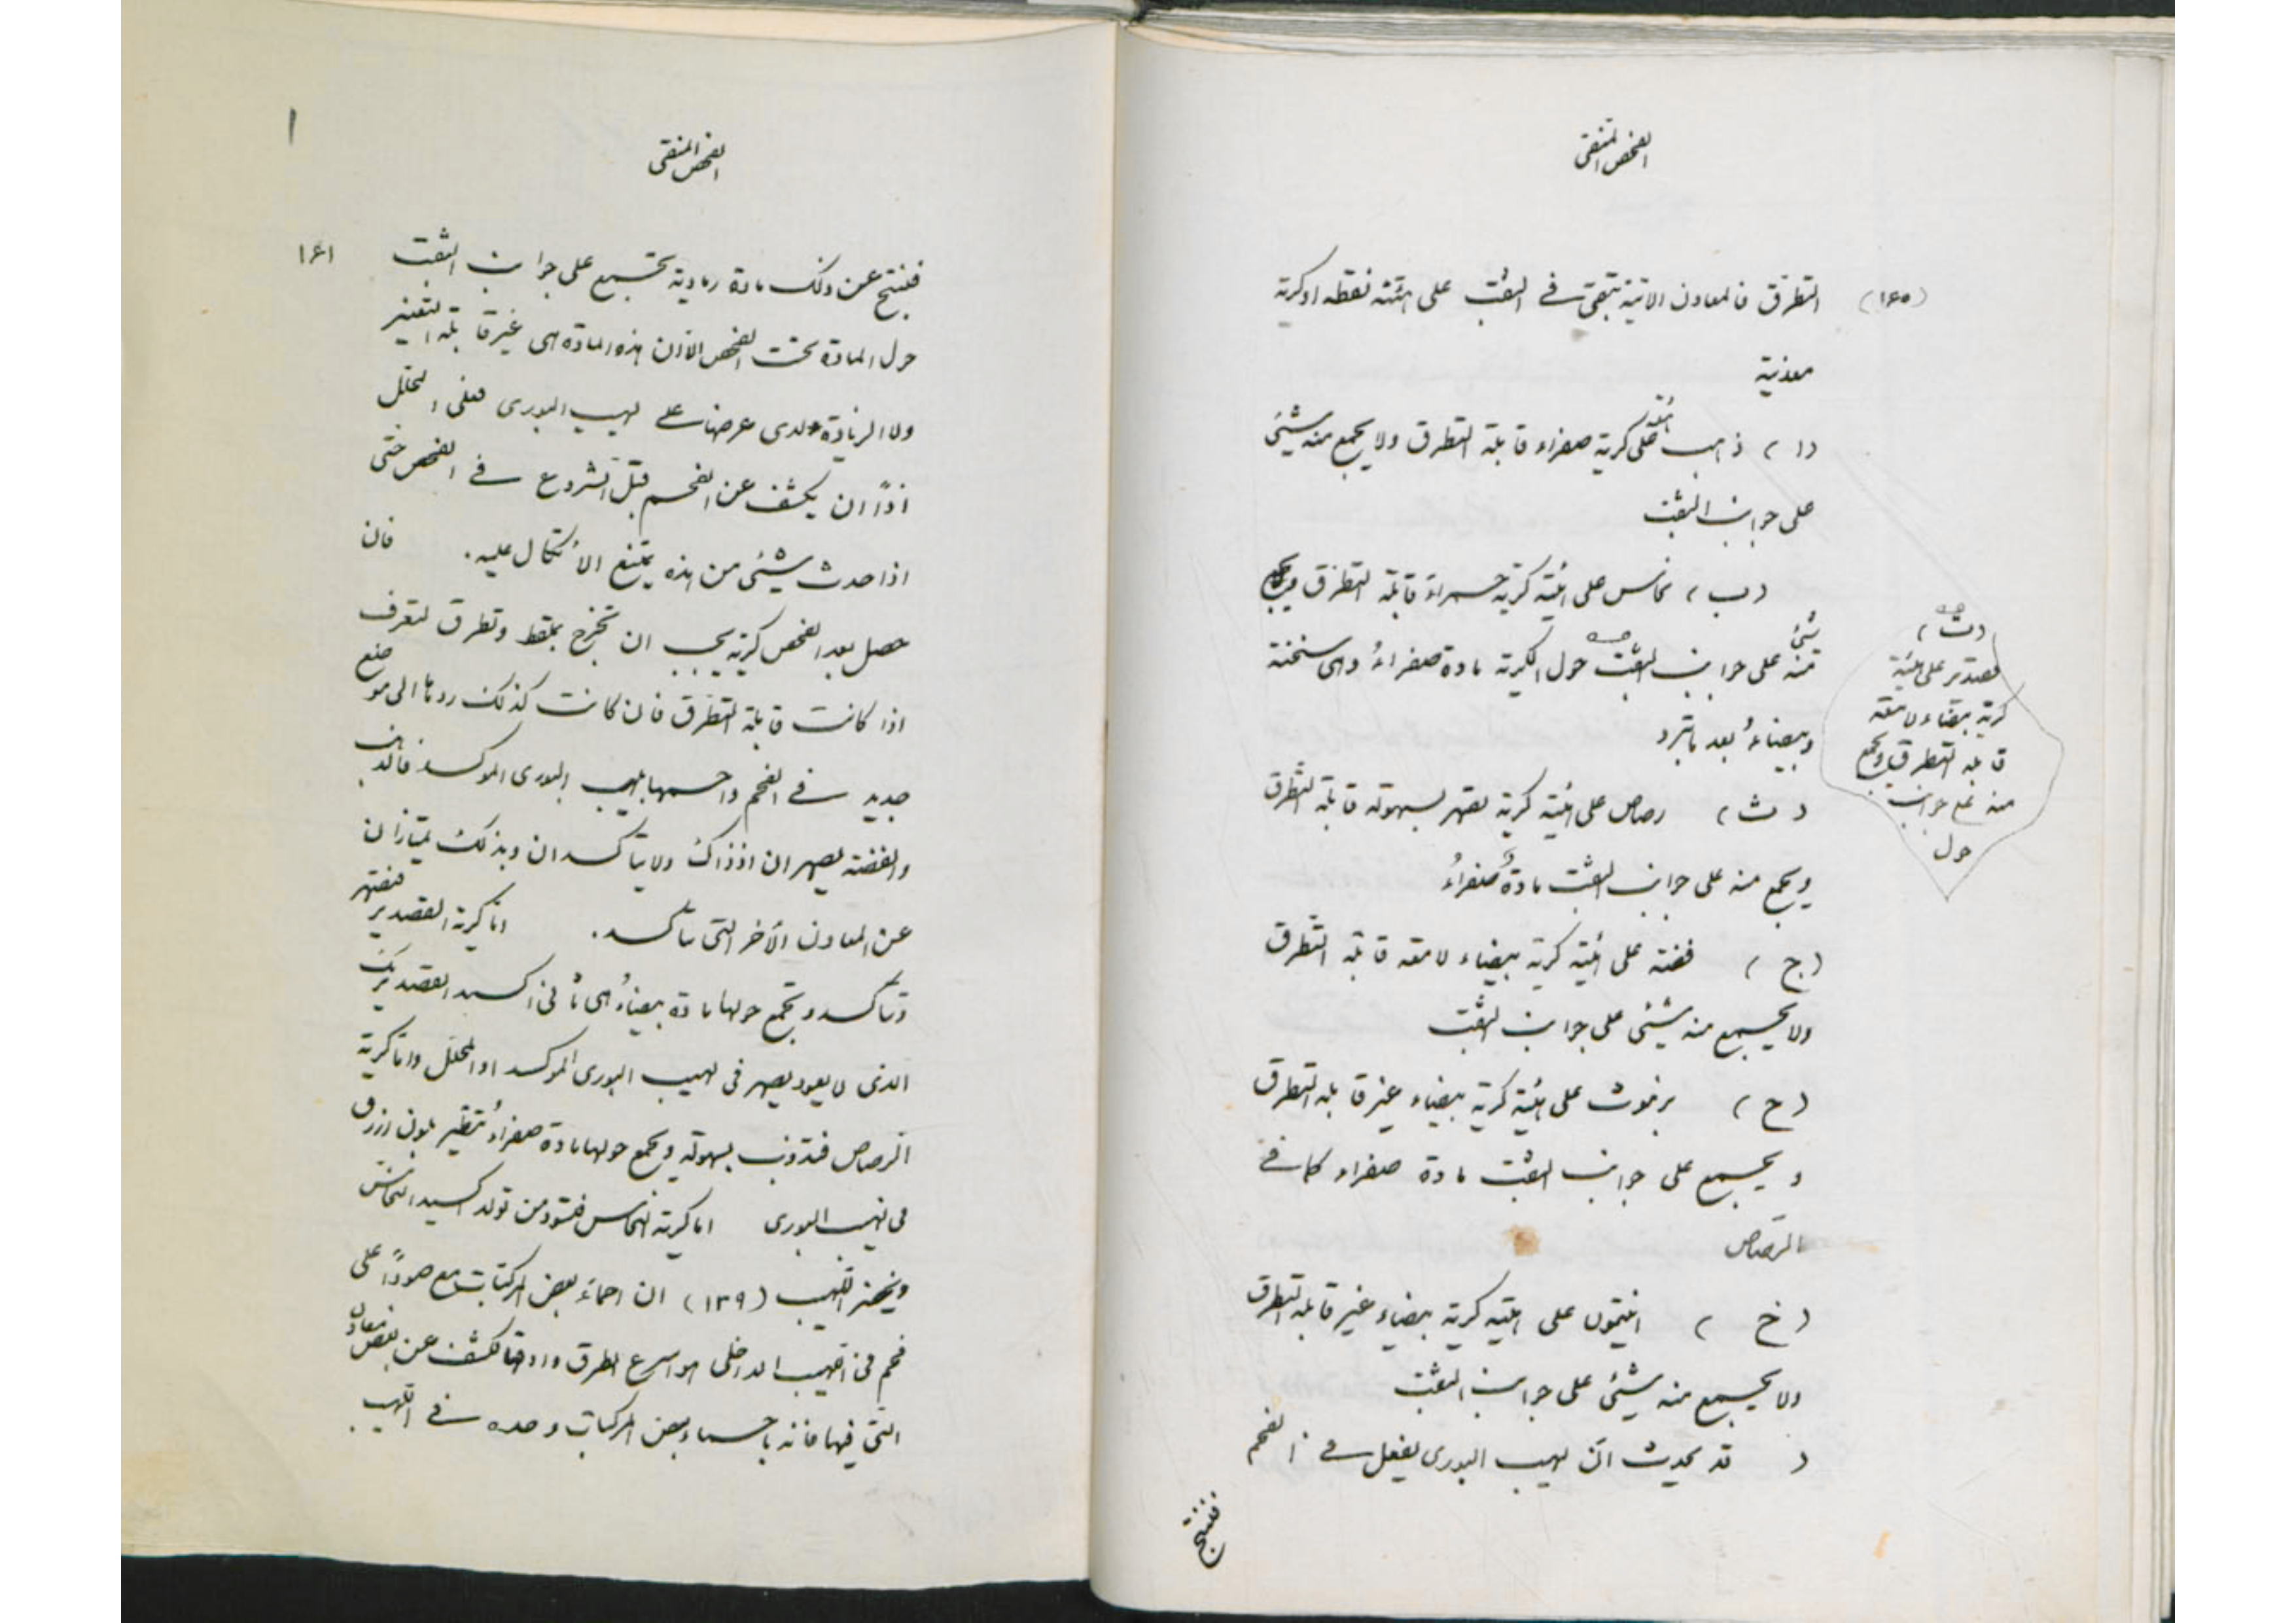 الفحص المنتقى
(١٤٥) التطرق فالمعادن الاتية تبقى في الثقب على هيئة نقطه او كرية
معدنية
(ا) ذهب على هيئة كرية صفراء قابلة التطرق ولا يجمع منه شيئى
على جوانب الثقب
(ب) نحاس على هيئة كرية حمراء قابلة التطرق ويجمع
شئ منه على جوانب الثقب حول الكرية مادة صفراءُ وهى سخنة
وبيضاءُ بعد ما تبرد
(ت)
قصدير على هيئة
كرية بيضاء لامعة
قابلة التطرق ويجمع
منه على جوانب
حول
(ث) رصاص على هيئة كرية تصهر بسهولة قابلة التطرق
ويجمع منه على جوانب الثقب مادةٌ صفراءُ
(ج) فضة على هيئة كرية بيضاء لامعة قابلة التطرق
ولا يجمع منه شيئى على جوانب الثقب
(ح) بزموث على هيئة كرية بيضاء غير قابلة التطرق
ويجمع على جوانب الثقب مادة صفراء كما في
الرصاص
(خ) انتيمون على هيئة كرية بيضاء غير قابلة التطرق
ولا يجمع منه شيئى على جوانب الثقب
( قد يحدث انّ لهيب البورى يفعل في الفحم
فينتج
الفحص المنتقى
١٤١
فينتج عن ذلك مادة رمادية تجتمع على جوانب الثقب
حول المادة تحت الفحص الا ان هذه المادة هى غير قابلة التغيير
ولا الزيادة لدى عرضها على لهيب البورى فعلى المحلل
اذًا ان يكشف عن الفحم قبل الشروع في الفحص حتى
اذا حدث شيئى من هذه يمتنع الاتكال عليه. فان
حصل بعد الفحص كرية يجب ان تخرج بملقط وتطرق لتعرف
اذا كانت قابلة التطرق فان كانت كذلك ردها الى موضع
جديد في الفحم واحمها بلهيب البورى الموكسد فالذهب
والفضة يصهران اذ ذاك ولا يتأكسدان وبذلك يمتازان
عن المعادن الأخر التى تتأكسد. اما كرية القصدير فتصهر
وتتأكسد وتجمع حولها مادة بيضاءُ هى ثانى اكسيد القصديريك
الذى لا يعود يصهر فى لهيب البورى الموكسد او المحلل واما كرية
الرصاص فتذوب بسهولة ويجمع حولها مادة صفراءُ تتطير بلون ازرق
فى لهيب البورى اما كرية النحاس فتسود من تولد اكسيد النحاس
ويخضر اللهيب (١٣٩) ان احماءَ بعض المركبات مع صودًا على
فحم فى اللهيب الداخلى هو اسرع الطرق وادقها لكشف عن بعض معادن
التى فيها فانه باحماء بعض المركبات وحده في اللهيب